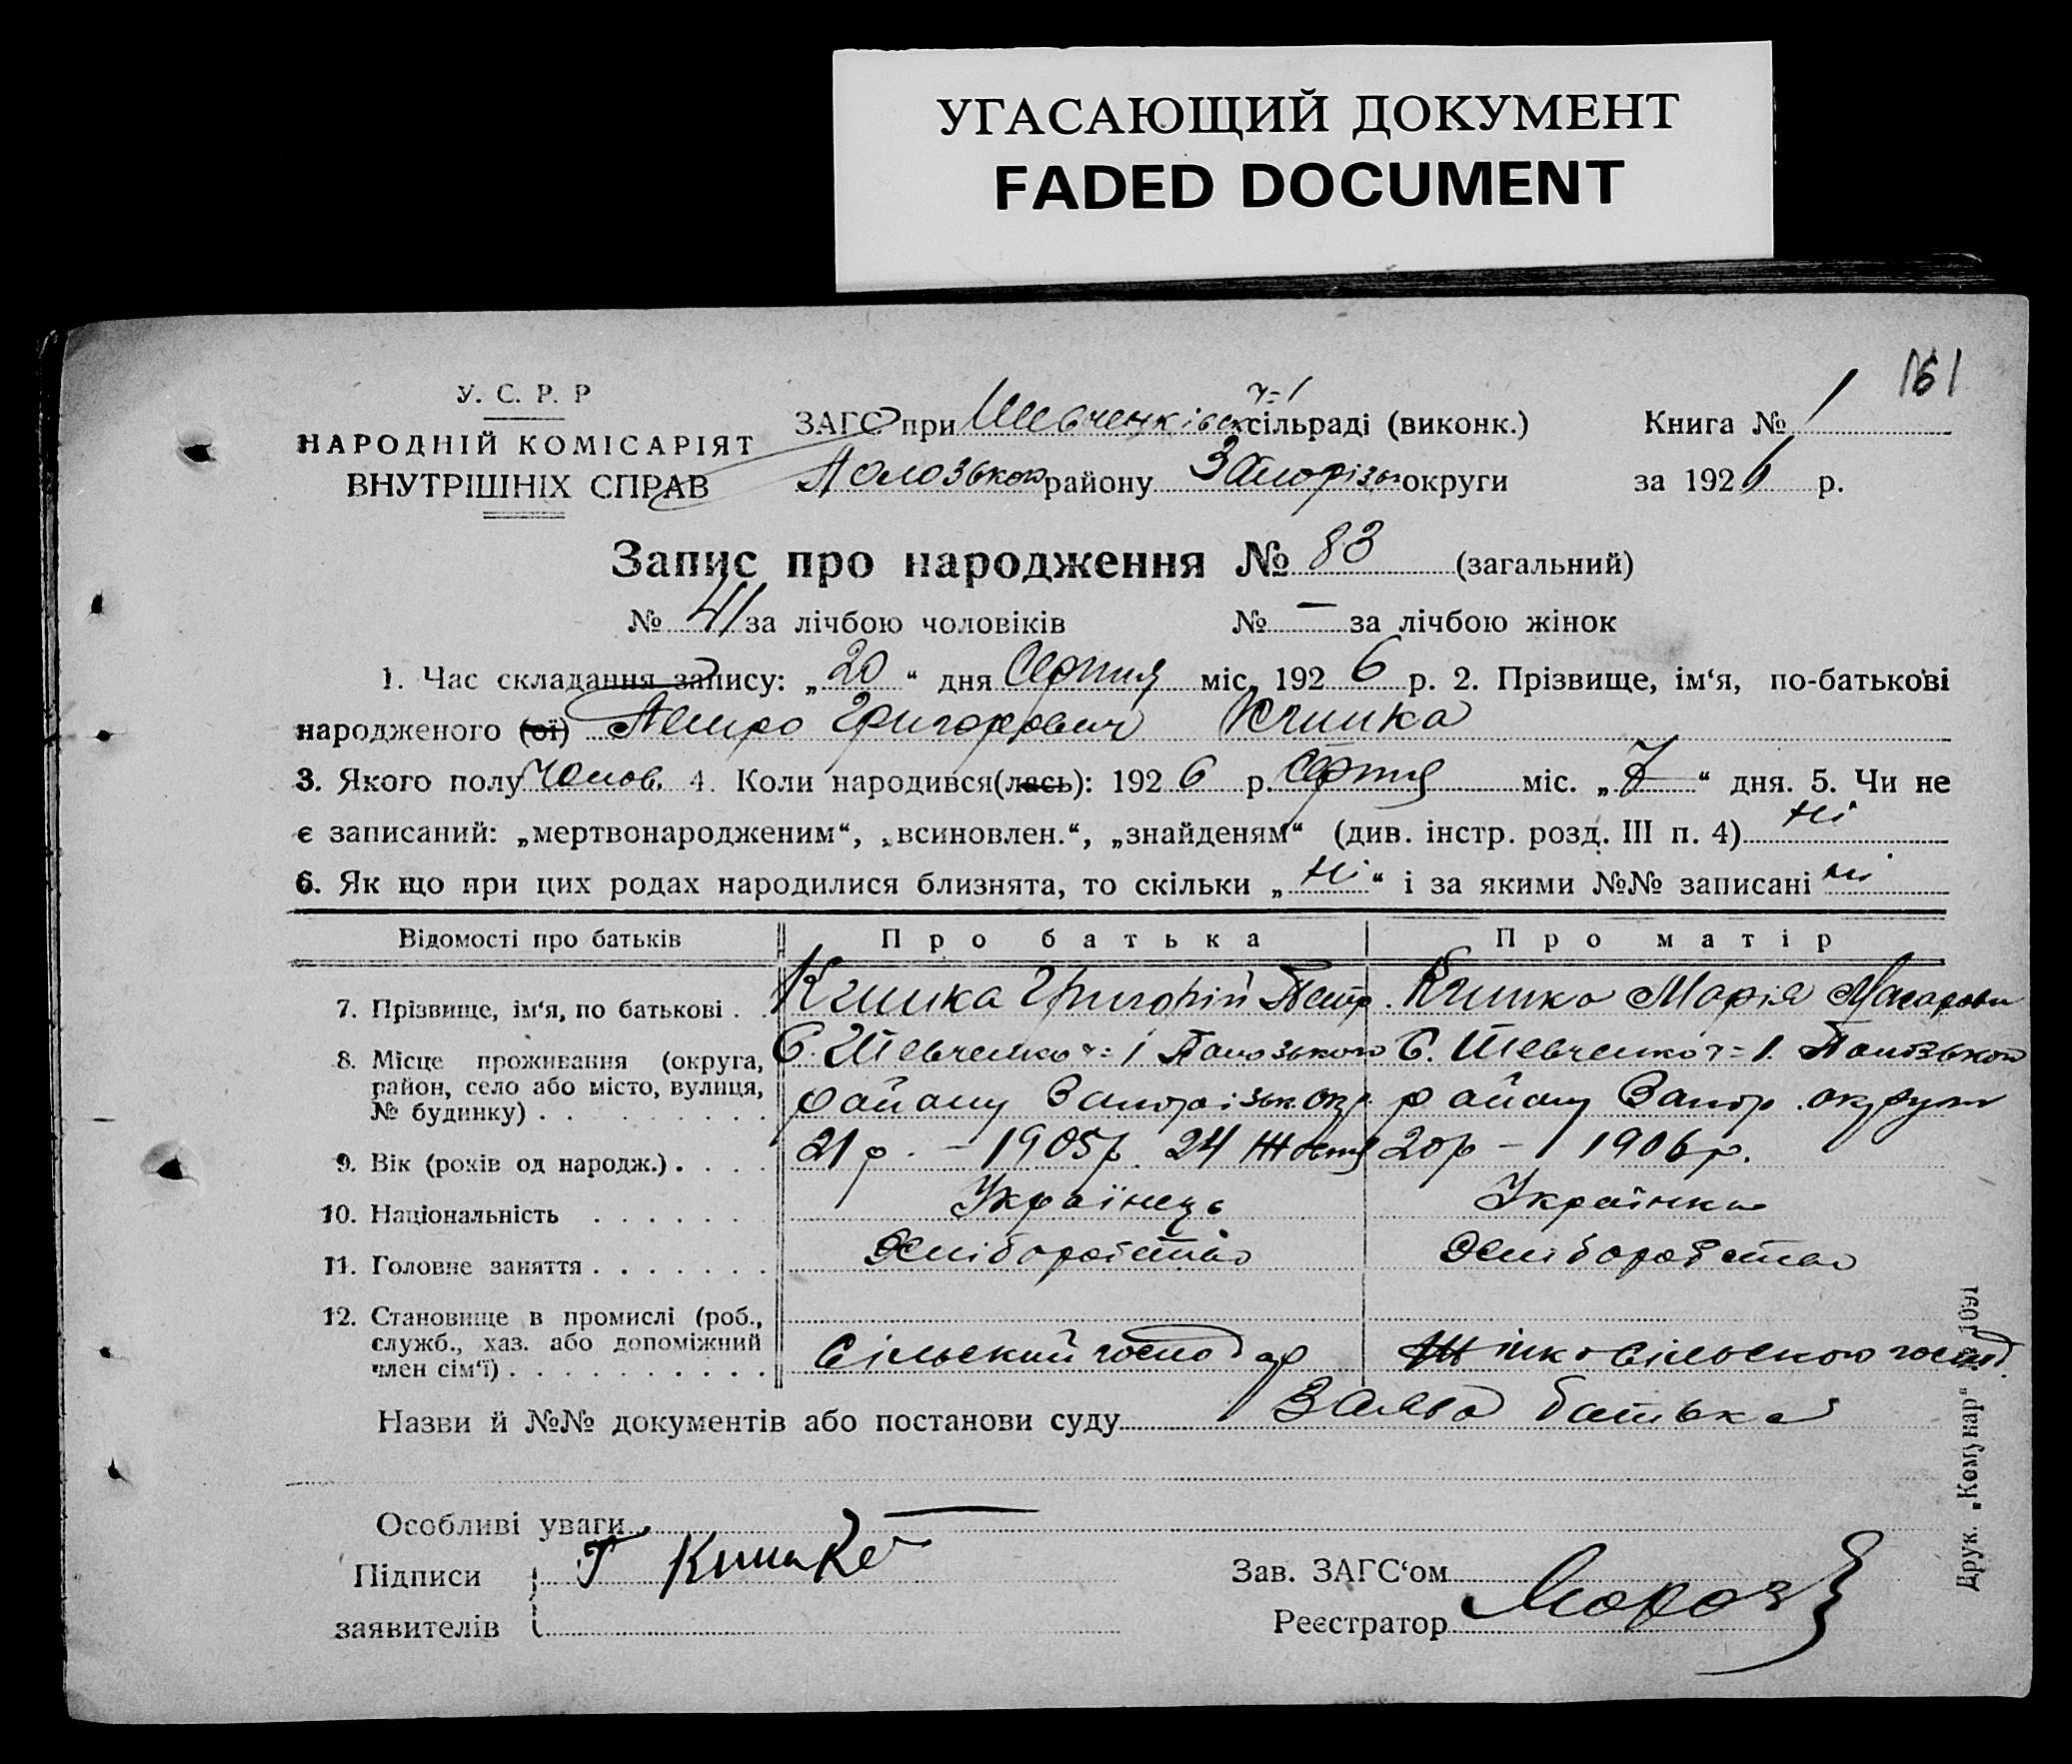 УГАСАЮЩИЙ ДОКУМЕНТ
FADED DOCUMENT
161
У. С. Р. Р
НАРОДНІЙ КОМІСАРІЯТ
ВНУТРІШНІХ СПРАВ
ч=1
ЗАГС при Шевченківск сільраді (виконк.)
Пологзького району Запорізьк округи
Книга № 1
за 1926 р.
Запис про народження № 83 (загальний)
№ 41 за лічбою чоловіків № — за лічбою жінок
1. Час складання запису: „20“ дня Серпня міс. 1926 р. 2. Прізвище, ім‘я, по-батькові
народженого (ої) Петро Григорович Кишка
3. Якого полу Чолов. 4. Коли народився(лась): 1926 р. Серпня міс. „7“ дня. 5. Чи не
є записаний: „мертвонародженим“, „всиновлен.“, „знайденям“ (див. інстр. розд. III п. 4) Ні
6. Як що при цих родах народилися близнята, то скільки „Ні“ і за якими №№ записані ні
Відомості про батьків Про батька Про матір
7. Прізвище, ім‘я, по батькові . . Кишка Григорій Петр. Кишка Марія Макарови
8. Місце проживання (округа, район, село або місто, вулиця, № будинку) . . . . . . . .
С. Шевченко ч=1 Пологзького
району Запорізьк. окр.
С. Шевченко ч=1. Пологзького
району Запор. округи
9. Вік (років од народж.) . . . . 21 р. – 1905 р. 24 Жовт 20 р – 1906 р.
10. Національність . . . . . . Українець Українка
11. Головне заняття . . . . . . . Хліборобство Хліборобство
12. Становище в промислі (роб., служб., хаз. або допоміжний член сім‘ї) . . . . . . . . . .
Сільский господар Жінка сільского господ.
Назви й №№ документів або постанови суду Заява батька
Особливі уваги —
Підписи Г Кишка
заявителів
Зав. ЗАГС‘ом
Реєстратор Мороз
Друк. „Комунар“ 1091